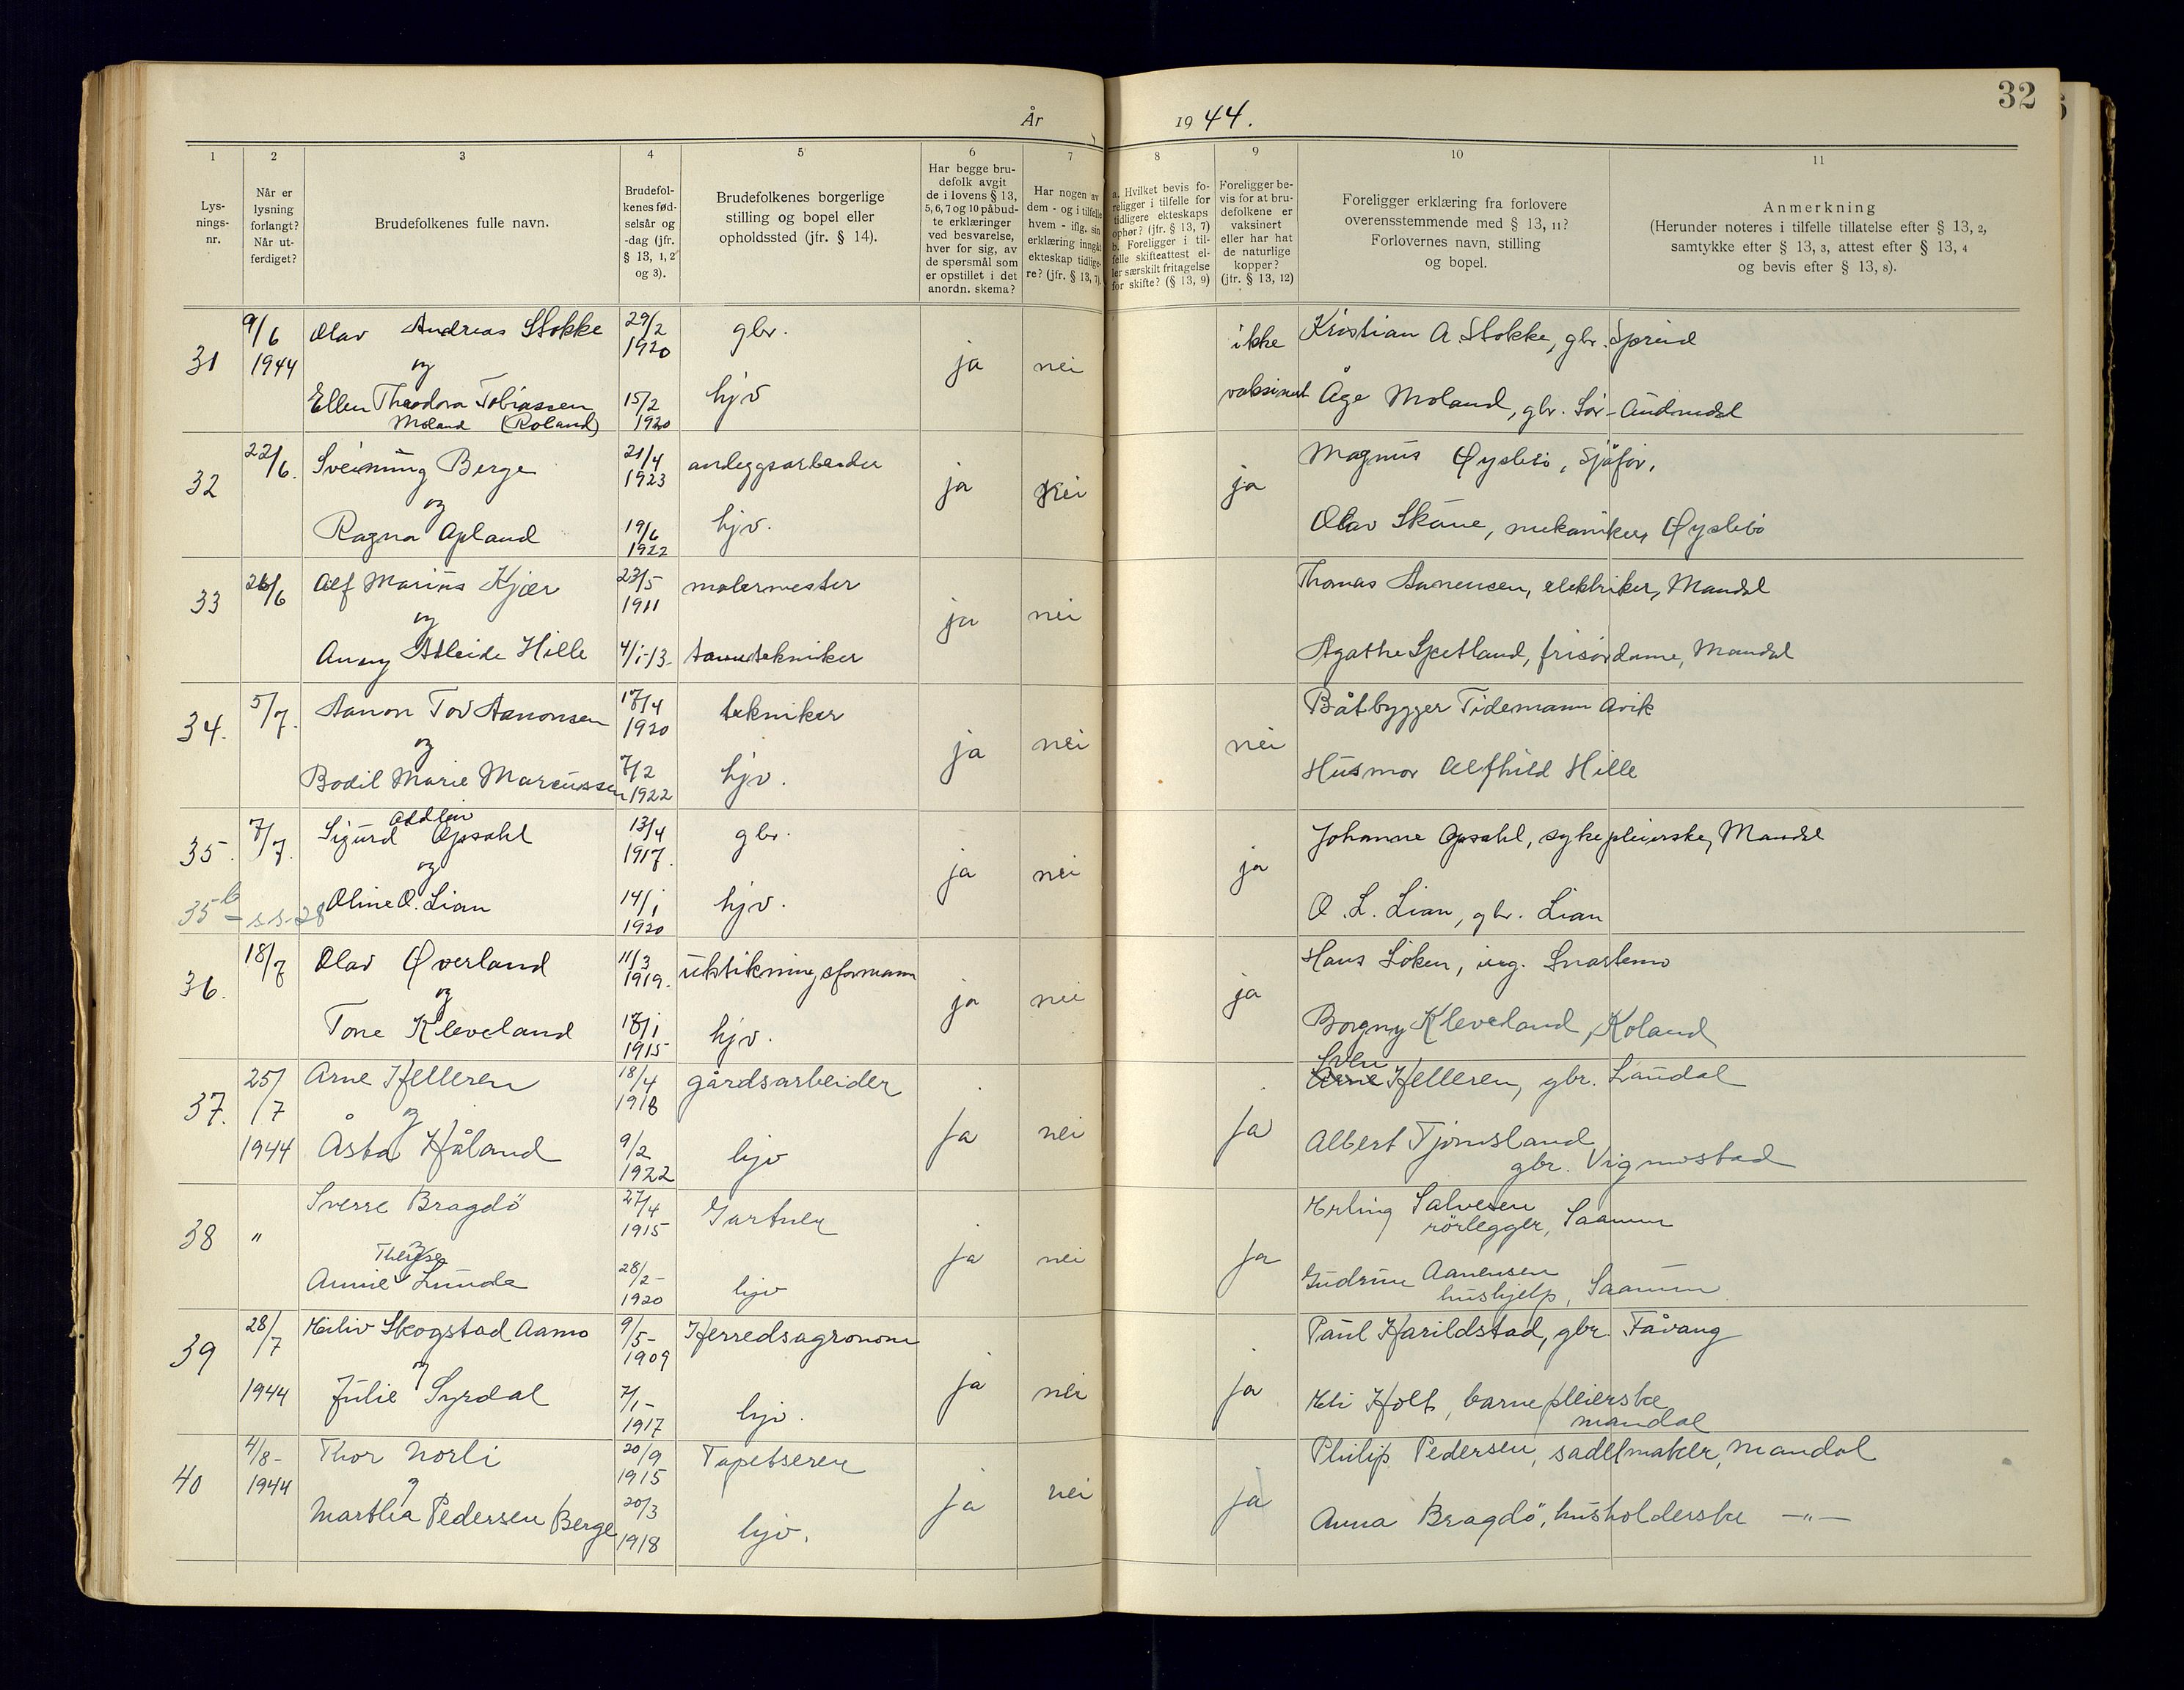 32
År 1944.
1 2 3 4 5 6 7 8 9 10 11
Lys-
nings-
nr.
Når er
lysning
forlangt?
Når ut-
ferdiget?
Brudefolkenes fulle navn.
Brudefol-
kenes fød-
selsår og
-dag (jfr.
§ 13, 1, 2
og 3).
Brudefolkenes borgerlige
stilling og bopel eller
opholdssted (jfr. § 14).
Har begge bru-
defolk avgit
de i lovens § 13,
5, 6, 7 og 10 påbud-
te erklæringer
ved besvarelse,
hver for sig, av
de spørsmål som
er opstillet i det
anordn. skema?
Har nogen av
dem - og i tilfelle
hvem - iflg. sin
erklæring inngått
ekteskap tidlige-
re? (jfr. § 13, 7).
a. Hvilket bevis fo-
religger i tilfelle for
tidligere ekteskaps
ophør? (jfr. § 13, 7)
b. Foreligger i til-
felle skifteattest el-
ler særskilt fritagelse
for skifte? (§ 13, 9)
Foreligger be-
vis for at bru-
defolkene er
vaksinert
eller har hat
de naturlige
kopper?
(jfr. § 13, 12)
Foreligger erklæring fra forlovere
overensstemmende med § 13, 11?
Forlovernes navn, stilling
og bopel.
Anmerkning
(Herunder noteres i tilfelle tillatelse efter § 13, 2,
samtykke efter § 13, 3, attest efter § 13, 4
og bevis efter § 13, 8).
31 9/6 1944 Olav Andreas Stokke 29/2 1920 gbr. ja nei ikke vaksinert Kristian A. Stokke, gbr. Spreid
og
Ellen Theodora Tobiassen 15/2 1920 hjv Åge Moland, gbr. Sør-Audnedal
Moland (Roland)
32 22/6. Sveinung Berge 21/4 1923 anleggsarbeider ja nei ja Magnus Øyslebö, sjåför,
og
Ragna Opland 19/6 1922 hjv. Olav Skåne, mekaniker, Øyslebö
33 26/6 Alf Marius Kjær 23/5 1911 malermester ja nei Thomas Aanensen, elektriker, Mandal
og
Anny Adleide Hille 4/1-13 tanntekniker Agathe Spetland, frisørdame, Mandal
34. 5/7. Aanon Tov Aanonsen 17/4 1920 tekniker ja nei nei Båtbygger Tidemann Avik
og
Bodil Marie Marcussen 7/2 1922 hjv. Husmor Alfhild Hille
35. 7/7. Sigurd Oddleiv Opsahl 13/4 1917. gbr. ja nei ja Johanne Opsahl, sykepleierske, Mandal
og
35b - s.s. 28 Oline O. Lian 14/1 1920 hjv. O. L. Lian, gbr. Lian
36. 18/7 Olav Øverland 11/3 1919. utstikningsformann ja nei ja Hans Löken, ing. Snartemo
og
Tone Kleveland 17/1 1915 hjv. Borgny Kleveland, Koland
37. 25/7 1944 Arne Helleren 18/4 1918 gårdsarbeider ja nei ja Sven Arne Helleren, gbr. Laudal
og
Åsta Håland 9/2 1922 hjv Albert Tjomsland
gbr. Vigmostad
38 " Sverre Bragdö 27/4 1915 Gartner ja nei ja Erling Salvesen
rörlegger, Saanum
og
Annie Therese Lunde 28/2- 1920 hjv Gudrun Aanensen
hushjelp, Saanum
39 28/7 1944 Eiliv Skogstad Aamo 9/5- 1909 Herredsagronom ja nei ja Paul Harildstad, gbr. Fåvang
og
Julie Syrdal 7/1- 1917 hjv. Eli Holt, barnepleierske
Mandal
40 4/8- 1944 Thor Norli 20/9 1915 Tapetserer ja nei ja Philip Pedersen, sadelmaker, Mandal
og
Martha Pedersen Berge 20/3 1918 hjv. Anna Bragdö, husholderske -"-